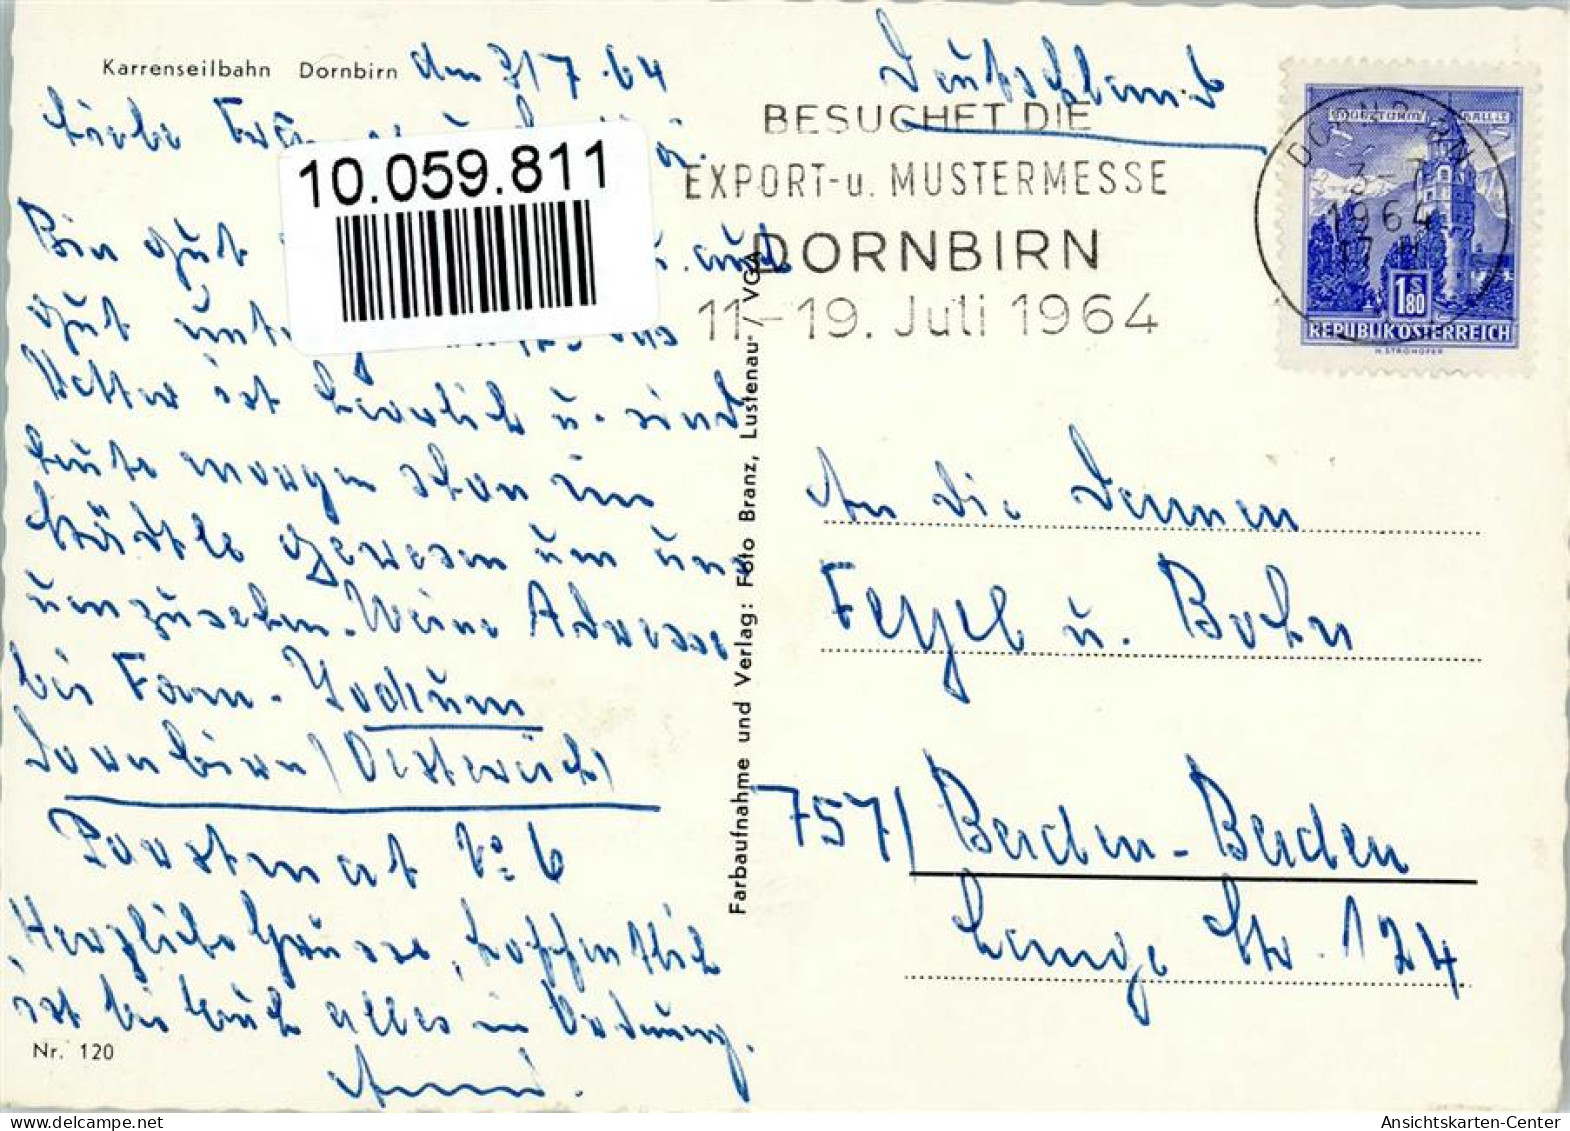 Karrenseilbahn Dornbirn den 3/7.64
Liebe
10.059.811
Bin gut u. auch
gut
Wetter ist herrlich u. sind
heute morgen schon im
Städtle gewesen um uns
umzusehen. Meine Adresse
bis Fam. Jochum
Dornbirn / Oesterreich /
Postamt No 6
Herzliche Grüsse, hoffentlich
ist bei Euch alles in Ordnung.
Anni.
Nr. 120
Farbaufnahme und Verlag: Foto Branz, Lustenau / VGA
Deutschland
BESUCHET DIE
EXPORT-u. MUSTERMESSE
DORNBIRN
11-19. Juli 1964
DORNBIRN
3-7
1964
17 H
1 S 80
REPUBLIK ÖSTERREICH
H. STROHOFER
An die Damen
Feygel u. Bohn
757 / Baden-Baden
Lange Str. 124
Ansichtskarten-Center